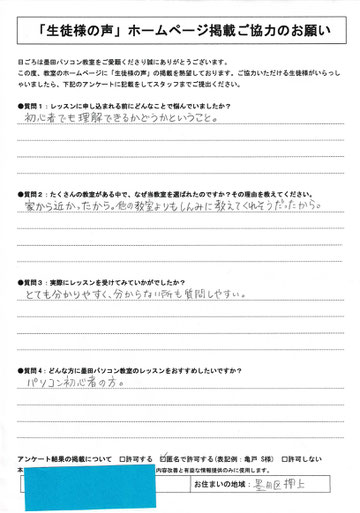 「生徒様の声」ホームページ掲載ご協力のお願い
日ごろは墨田パソコン教室をご愛顧くださり誠にありがとうございます。
この度、教室のホームページに「生徒様の声」の掲載を熱望しております。ご協力いただける生徒様がいらっし
ゃいましたら、下記のアンケートに記載をしてスタッフまでご提出ください。
●質問1：レッスンに申し込まれる前にどんなことで悩んでいましたか？
初心者でも理解できるかどうかということ。
●質問2：たくさんの教室がある中で、なぜ当教室を選ばれたのですか？その理由を教えてください。
家から近かったから。他の教室よりもしんみに教えてくれそうだったから。
●質問3：実際にレッスンを受けてみていかがでしたか？
とても分かりやすく、分からない所も質問しやすい。
●質問4：どんな方に墨田パソコン教室のレッスンをおすすめしたいですか？
パソコン初心者の方。
アンケート結果の掲載について　□許可する　☑匿名で許可する(表記例：亀戸 S様)　□許可しない
本
内容改善と有益な情報提供のみに使用します。
お住まいの地域：墨田区押上